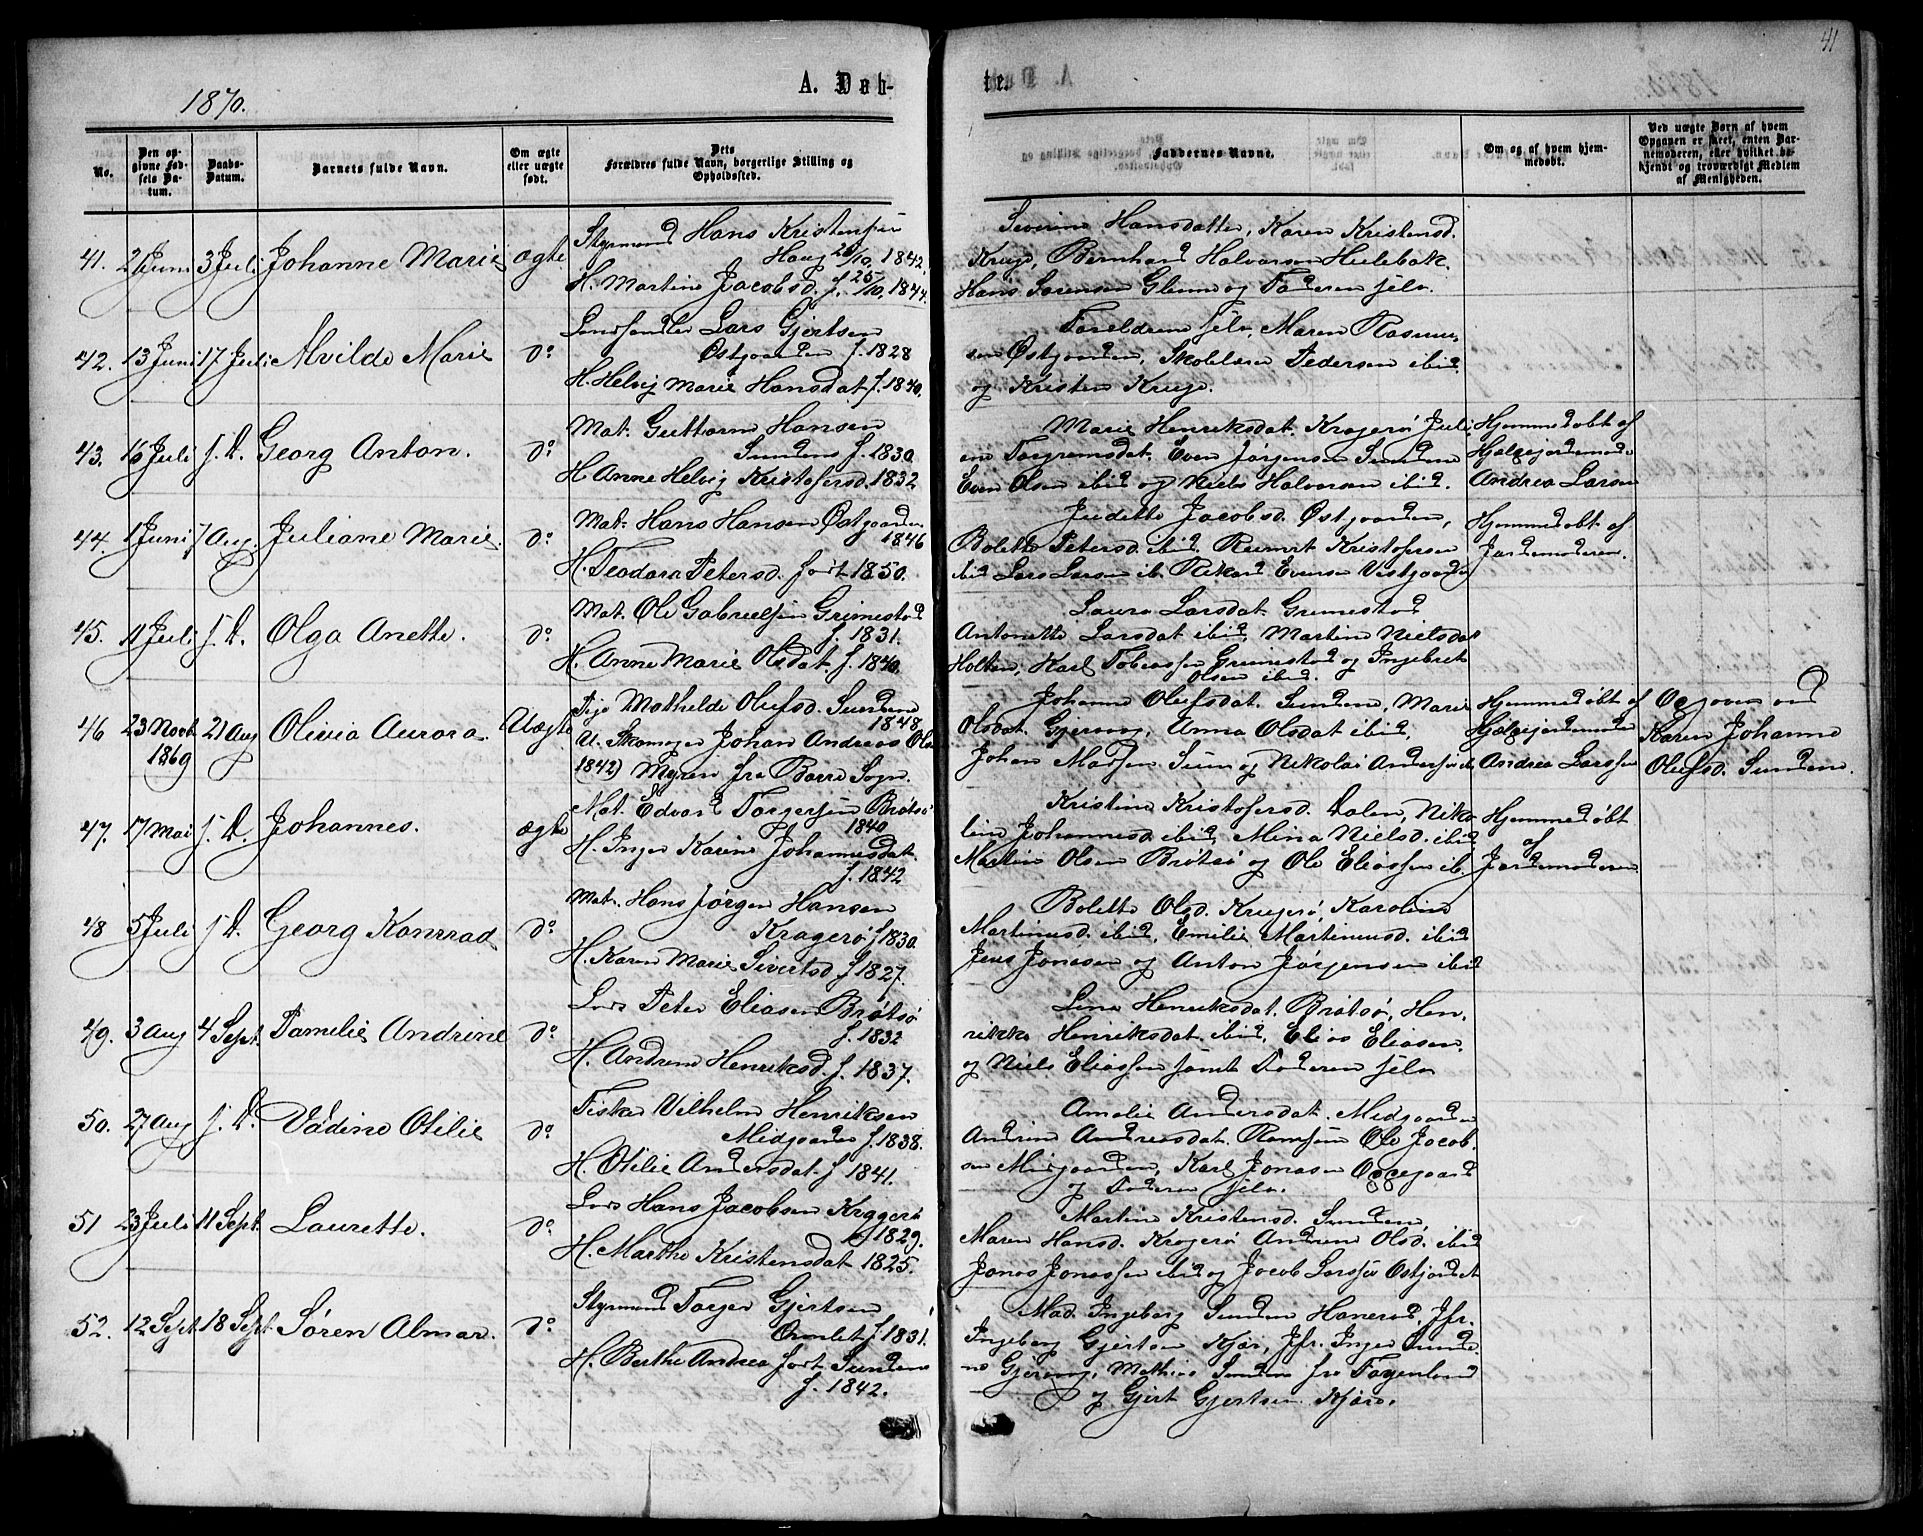 1870.
A. Døb-
te.
41
No.
Den op-
givne Fød-
sels Da-
tum.
Daabs-
Datum.
Barnets fulde Navn.
Om ægte
eller uægte
født.
Dets
Forældres fulde Navn, borgerlige Stilling og
Opholdssted.
Faddernes Navne.
Om og af hvem hjem-
medøbt.
Ved uægte Børn af hvem
Opgaven er skeet, enten Bar-
nemoderen, eller hvilket be-
kjendt og troværdigt Medlem
af Menigheden.
41. 21 Juni 3 Juli Johanne Marie ægte
Styrmand Hans Kristensen
Haug 1842.
H. Martine Jacobsd. f. 25/10 1844.
Severine Hansdatter, Karen Kristensd.
Kruge, Bernhard Halvorsen Hulebak,
Hans Sørensen Glenne og Faderen selv.
42. 13 Juni 17 Juli Alvilde Marie do
Landhandler Lars Gjertsen
Østgaarden f. 1828
H. Helvig Marie Hansdat f. 1840.
Forældrene selv, Maren Rasmus-
sen Østgaarden, Skolelærer Pedersen ibid
og Kristen Kruge.
43. 16 Juli s. D. Georg Anton. do
Mat. Guttorm Hansen
Sundene f. 1830.
H. Anne Helvig Kristofersd. 1832
Marie Henriksdat. Kragerø, Juli-
ane Torgrimsdat. Even Jørgensen Sundene
Even Olsen ibid og Niels Halvorsen ibid.
Hjemmedøbt af
Hjælpejordemoder
Andrea Larsen
44. 1 Juni 7 Aug. Juliane Marie. do
Mat. Hans Hansen Østgaarden
1846
H. Teodora Petersd. født 1850.
Judette Jacobsd. Østgaarden,
Bolette Petersd. ibid. Reinert Kristofersen
ibid Lars Larsen ib. Rikard Evensen Vestgaarden
Hjemmedøbt af
Jordemoderen.
45. 11 Juli s. D. Olga Anette. do
Mat. Ole Gabrielsen Grimestad
f. 1831.
H. Anne Marie Olsdat f. 1840.
Laura Larsdat. Grimestad
Antonette Larsdat ibid, Martine Nielsdat
Holten, Karl Tobiassen Grimestad og Ingebret
Olsen ibid.
46 23 Novbr 1869 21 Aug Olivia Aurora. Uægte
Pige Mathilde Olufsd. Sundene
1848.
U. Skomager Johan Andreas Ols.
1842) Myren fra Borre Sogn.
Johanne Olufsdat. Sundene, Marie
Olsdat. Gjersøe, Anna Olsdat ibid,
Johan Madsen Sum og Nikolai Andersen
Hjemmedøbt af
Hjælpejordemoder
Andrea Larssen
Opgiven ved
Karen Johanne
Olufsd. Sundene.
47. 17 Mai s. D. Johannes. ægte
Mat. Edvard Torgersen Brøtsø
1840
H. Inger Karine Johannesdat.
f. 1842
Kristine Kristofersd. Dalen, Niko-
line Johannesd. ibid, Mina Nielsd. ibid
Martin Olsen Brøtsø og Ole Eliassen ib.
Hjemmedøbt
af
Jordemoderen
48 5 Juli s. D. Georg Konrrad do
Mat. Hans Jørgen Hansen
Kragerø f. 1830.
H. Karen Marie Sivertsd. f. 1827.
Bolette Olsd. Krugerø, Karoline
Martinusd. ibid, Emilie Martinusd. ibid
Jens Jonasen og Anton Jørgensen ibid
49. 3 Aug 4 Sept. Pamelie Andrine do
Lods Peter Eliasen Brøtsø
f. 1832
H. Andrine Henriksd. f. 1837.
Lina Henriksdat. Brøtsø, Hen-
rikke Henriksdat. ibid, Elias Eliasen,
og Niels Eliassen samt Faderen selv
50. 27 Aug s. D. Valdine Otilie do
Fisker Vilhelm Henriksen
Midgaarden f. 1838.
H. Otilie Andersdat f. 1841.
Amalie Andersdat. Midgaarden
Andrine Andreasdat. Ramsøen Ole Jacob-
sen Midgaarden, Karl Jonasen Oppegaard
og Faderen selv.
51 23 Juli 11 Sept. Laurette. do
Lods Hans Jacobsen Krggerø
f 1829.
H. Marthe Kristensdat 1825.
Martine Kristensd. Sundene
Maren Hansd. Kragerø Andrine Olsd. ibid
Jonas Jonassen ibid og Jacob Larssen Østjordet
52. 12 Sept 18 Sept. Søren Almar. do
Styrmand Torger Gjertsen
Ormlet f. 1831.
H. Berthe Andrea født Sundene
f. 1842.
Mad. Ingeborg Sundene Hanerød, Jfr.
Ingeborg Gjertsen Kjær, Jfr. Inger Sunde-
ne Gjersøe, Mathias Sundene fra Føyenland
og Gjert Gjertsen Kjær.